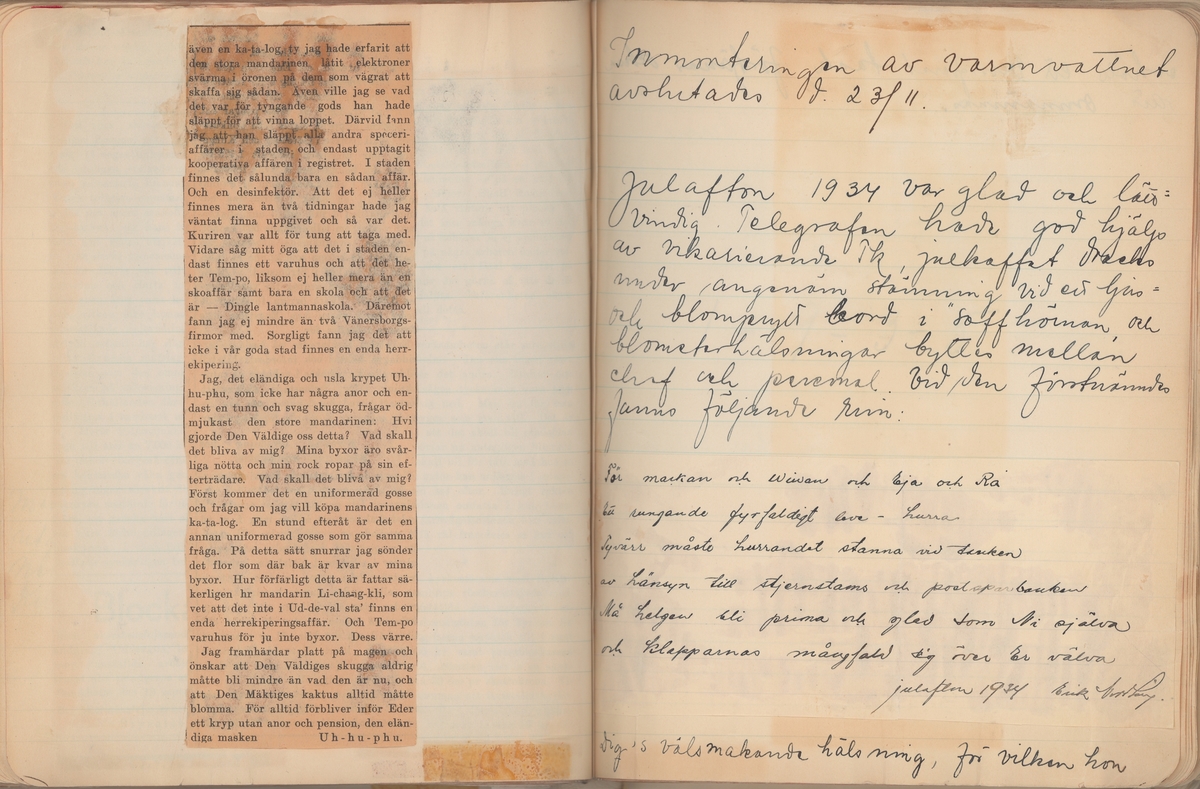 även en ka-ta-log, ty jag hade erfarit att
den stora mandarinen låtit elektroner
svärma i öronen på dem som vägrat att
skaffa sig sådan. Även ville jag se vad
det var för tyngande gods han hade
släppt för att vinna loppet. Därvid fann
jag att han släppt alla andra speceri-
affärer i staden och endast upptagit
kooperativa affären i registret. I staden
finnes det sålunda bara en sådan affär.
Och en desinfektör. Att det ej heller
finnes mera än två tidningar hade jag
väntat finna uppgivet och så var det.
Kuriren var allt för tung att taga med.
Vidare såg mitt öga att det i staden en-
dast finnes ett varuhus och att det he-
ter Tem-po, liksom ej heller mera än en
skoaffär samt bara en skola och att det
är — Dingle lantmannaskola. Däremot
fann jag ej mindre än två Vänersborgs-
firmor med. Sorgligt fann jag det att
icke i vår goda stad finnes en enda herr-
ekipering.
Jag, det eländiga och usla krypet Uh-
hu-phu, som icke har några anor och en-
dast en tunn och svag skugga, frågar öd-
mjukast den store mandarinen: Hvi
gjorde Den Väldige oss detta? Vad skall
det bliva av mig? Mina byxor äro svår-
liga nötta och min rock ropar på sin ef-
terträdare. Vad skall det blivå av mig?
Först kommer det en uniformerad gosse
och frågar om jag vill köpa mandarinens
ka-ta-log. En stund efteråt är det en
annan uniformerad gosse som gör samma
fråga. På detta sätt snurrar jag sönder
det flor som där bak är kvar av mina
byxor. Hur förfärligt detta är fattar sä-
kerligen hr mandarin Li-chang-kli, som
vet att det inte i Ud-de-val sta' finns en
enda herrekiperingsaffär. Och Tem-po
varuhus för ju inte byxor. Dess värre.
Jag framhärdar platt på magen och
önskar att Den Väldiges skugga aldrig
måtte bli mindre än vad den är nu, och
att Den Mäktiges kaktus alltid måtte
blomma. För alltid förbliver inför Eder
ett kryp utan anor och pension, den elän-
diga masken Uh-hu-phu.
Inmonteringen av varmvattnet
avslutades d. 23/11.
Julafton 1934 var glad och lätt=
vindig. Telegrafen hade god hjälp
av vikarierande Tk, julkaffet dracks
under angenäm stämning vid ett ljus=
och blomprytt bord i "soffhörnan och
blomsterhälsningar byttes mellan
chef och personal. Vid den förstnämndes
fanns följande rim:
För markan och Wivan och Eja och Ra
Ett rungande fyrfaldigt leve - hurra
Tyvärr måste hurrandet stanna vid tanken
av hänsyn till stjernstams och postsparbanken
Må helgen bli prima och glad som Ni själva
och klapparnas mångfald sig över Er välva
julafton 1934 Erik
Dig's välsmakande hälsning, för vilken hon